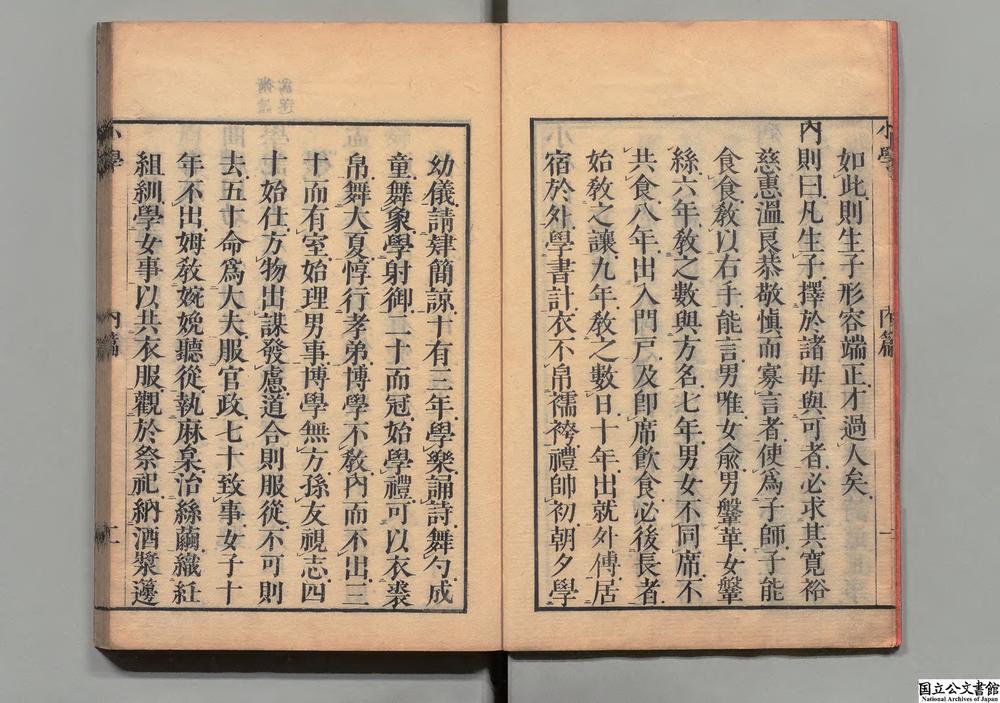 小學
內篇
一
如此則生子形容端正才過人矣
內則曰凡生子擇於諸母與可者必求其寬裕
慈惠溫良恭敬愼而寡言者使爲子師子能
食食敎以右手能言男唯女兪男鞶革女鞶
絲六年敎之數與方名七年男女不同席不
共食八年出入門戸及卽席飮食必後長者
始敎之讓九年敎之數日十年出就外傅居
宿於外學書計衣不帛襦袴禮帥初朝夕學
幼儀請肄簡諒十有三年學樂誦詩舞勺成
童舞象學射御二十而冠始學禮可以衣裘
帛舞大夏惇行孝弟博學不敎內而不出三
十而有室始理男事博學無方孫友視志四
十始仕方物出謀發慮道合則服從不可則
去五十命爲大夫服官政七十致事女子十
年不出姆敎婉娩聽從執麻枲治絲繭織紝
組紃學女事以共衣服觀於祭祀納酒漿籩
小學
內篇
二
国立公文書館
National Archives of Japan